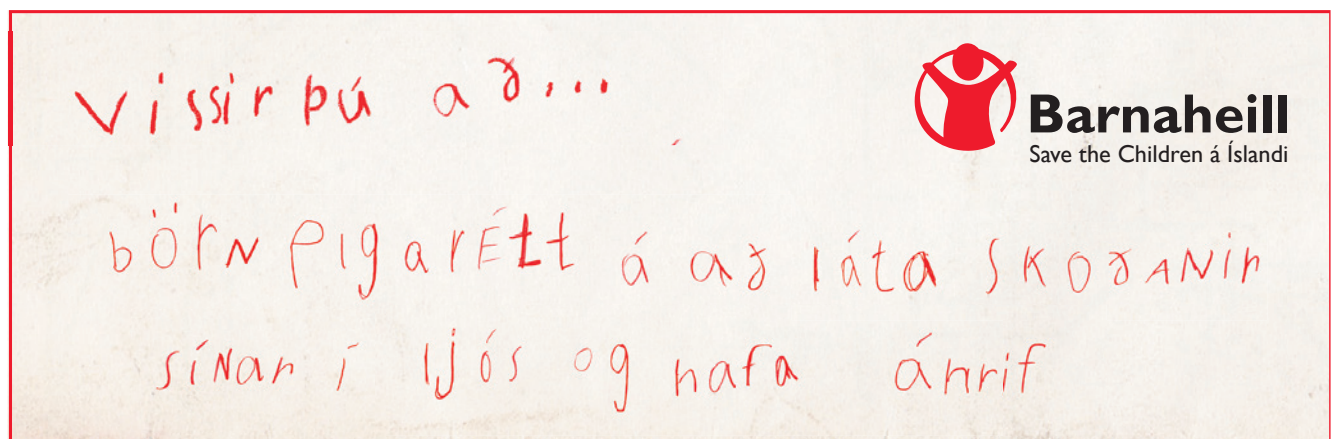 Vissir þú að...
Barnaheill
Save the Children á Íslandi
börn eiga rétt á að láta skoðanir
sínar í ljós og hafa áhrif